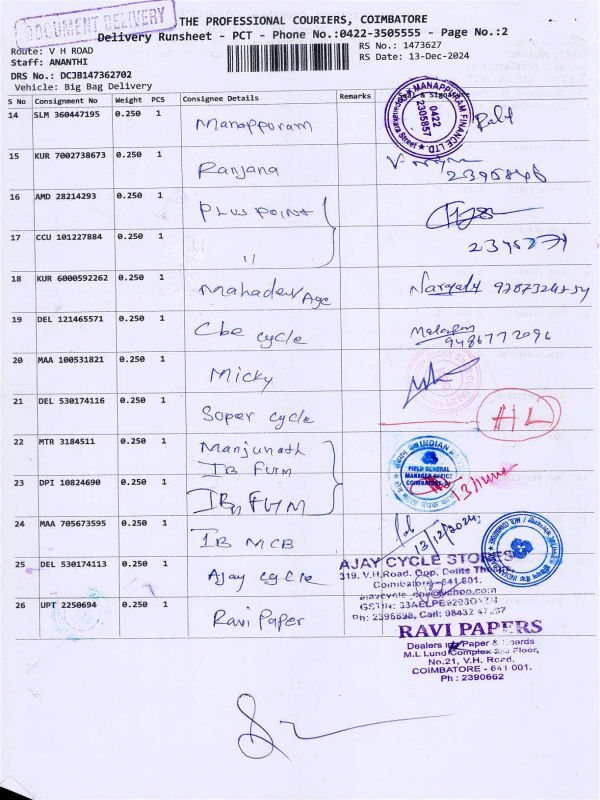 DOCUMENT DELIVERY
THE PROFESSIONAL COURIERS, COIMBATORE
Delivery Runsheet - PCT - Phone No.:0422-3505555 - Page No.:2
Route: V H ROAD
RS No.: 1473627
Staff: ANANTHI
RS Date: 13-Dec-2024
DRS No.: DCJB147362702
Vehicle: Big Bag Delivery
S No Consignment No Weight PCS Consignee Details Remarks
MANAPPURAM FINANCE LTD
0422
2305857
14 SLM 360447195 0.250 1 Manappuram
15 KUR 7002738673 0.250 1 Ranjana
16 AMD 28214293 0.250 1 Plus Point
17 CCU 101227884 0.250 1 "
18 KUR 6000592262 0.250 1 Mahadev Age
19 DEL 121465571 0.250 1 Cbe cycle 9486772096
20 MAA 100531821 0.250 1 Micky
21 DEL 530174116 0.250 1 Soper cycle HL
22 MTR 3184511 0.250 1 Manjunath
IB FUTM
INDIAN
FIELD GENERAL
MANAGER OFFICE
COIMBATORE
23 DPI 10824690 0.250 1 IB FUTM
24 MAA 705673595 0.250 1 IB MCB 13/12/2024
25 DEL 530174113 0.250 1 Ajay cycle
AJAY CYCLE STORES
319. V.H.Road. Opp. Delite Theatre,
Coimbatore-641 001.
26 UPT 2250694 0.250 1 Ravi Paper
RAVI PAPERS
Dealers in Paper & Boards
M.L Lund Complex 2nd Floor,
No.21, V.H. Road,
COIMBATORE - 641 001.
Ph : 2390662